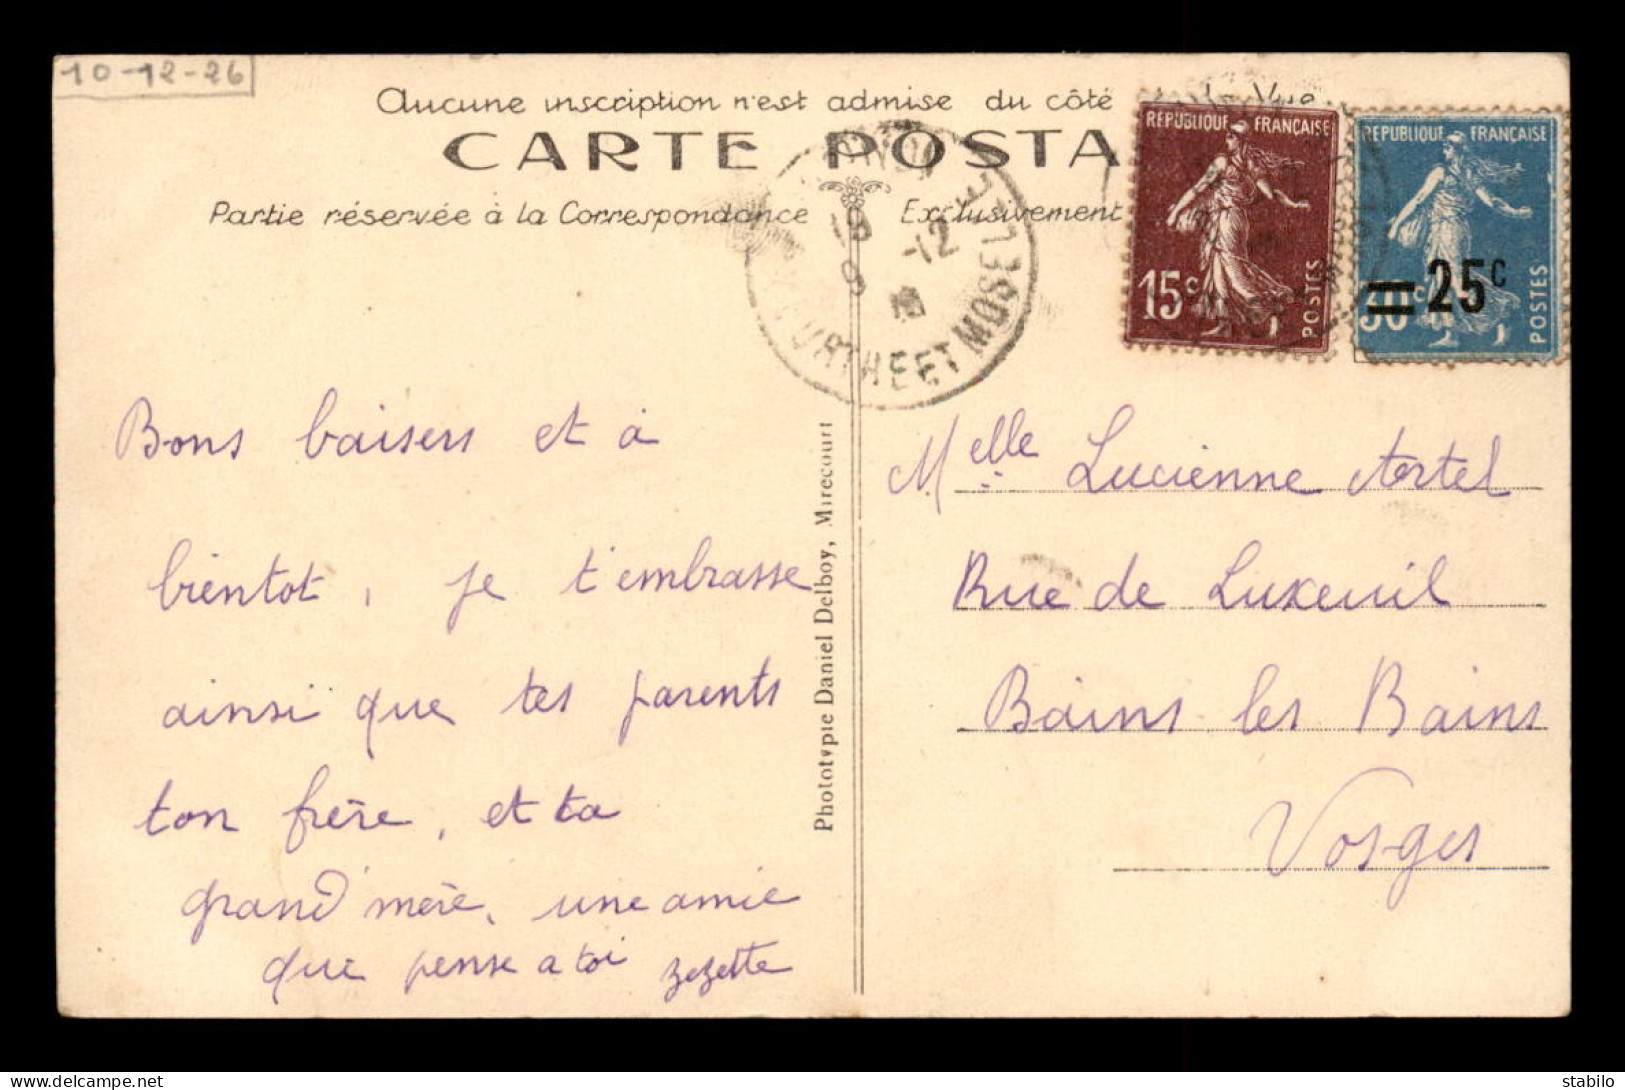 10-12-26
Aucune inscription n'est admise du côté
CARTE POSTA
Partie réservée à la Correspondance
Exclusivement
RÉPUBLIQUE FRANÇAISE
15c
POSTES
RÉPUBLIQUE FRANÇAISE
30c
25c
POSTES
18 -12
URTHE ET MOSELLE
Bons baisers et à
bientot, je t'embrasse
ainsi que tes parents
ton frère, et ta
grand mère, une amie
que pense a toi zezette
Phototypie Daniel Delboy, Mirecourt
Melle Lucienne Artel
Rue de Luxeuil
Bains les Bains
Vosges
delcampe.net
stabilo